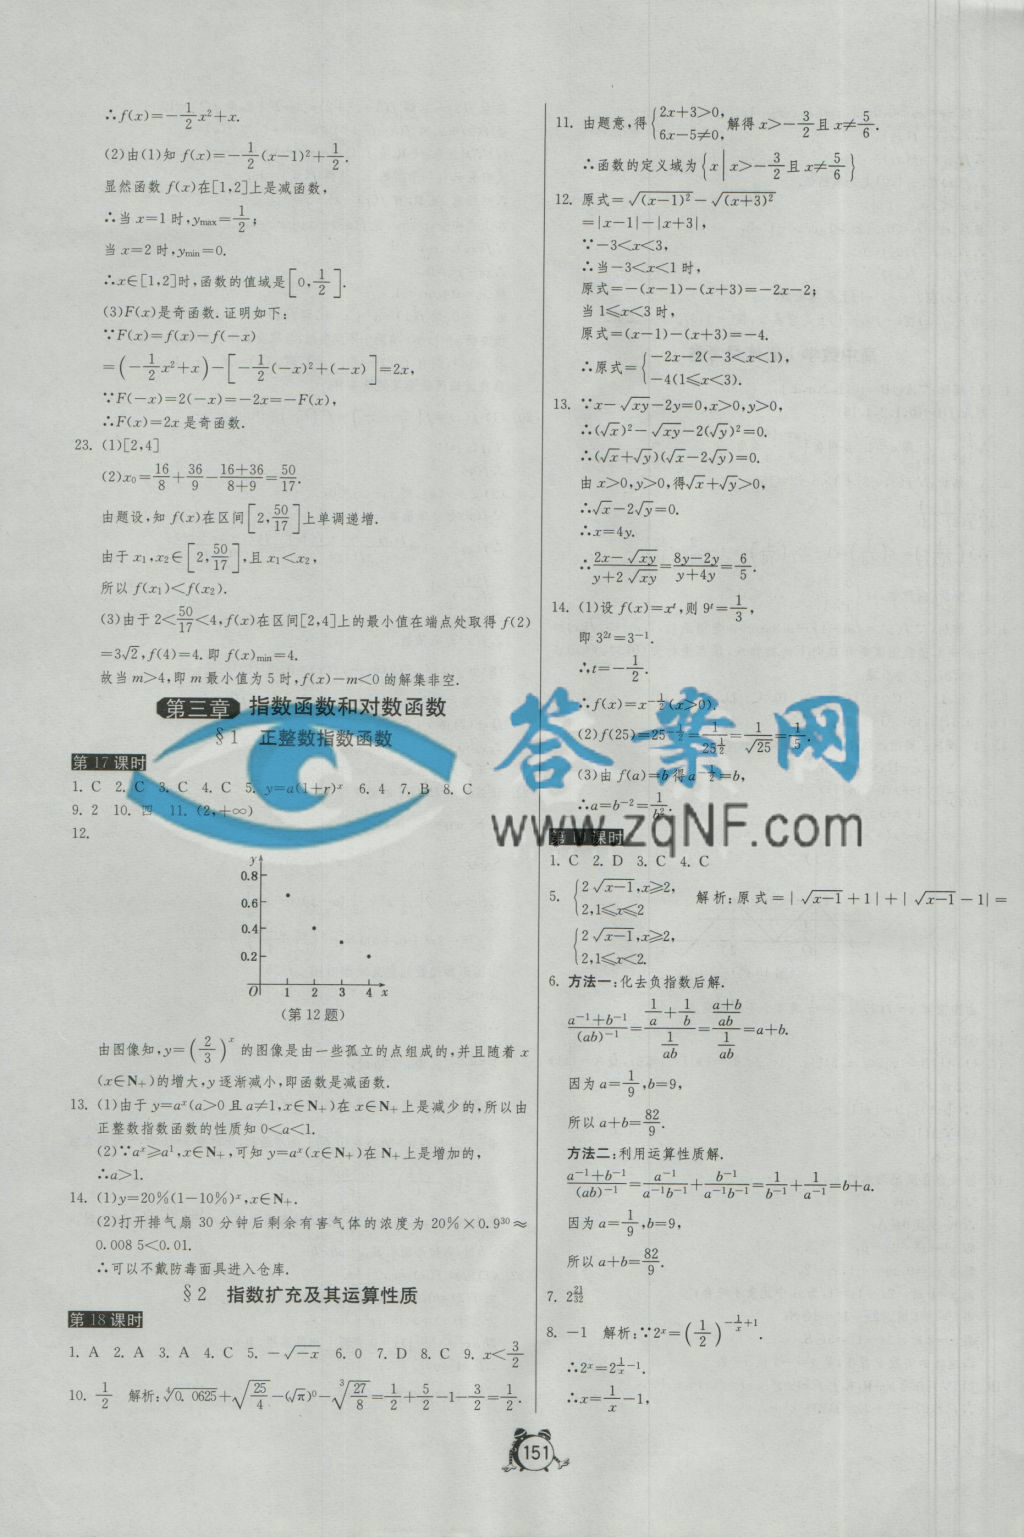 ∴f(x)=-1/2x²+x.
(2)由(1)知 f(x)=-1/2(x-1)²+1/2.
显然函数 f(x)在[1,2]上是减函数,
∴当 x=1 时,ymax=1/2;
当 x=2 时,ymin=0.
∴x∈[1,2]时,函数的值域是[0,1/2].
(3)F(x)是奇函数.证明如下:
∵F(x)=f(x)-f(-x)
=(-1/2x²+x)-[-1/2(-x)²+(-x)]=2x,
∵F(-x)=2(-x)=-2x=-F(x),
∴F(x)=2x 是奇函数.
23. (1)[2,4]
(2)x₀=16/8+36/9-(16+36)/(8+9)=50/17.
由题设,知 f(x)在区间[2,50/17]上单调递增.
由于 x₁,x₂∈[2,50/17],且 x₁<x₂,
所以 f(x₁)<f(x₂).
(3)由于 2<50/17<4,f(x)在区间[2,4]上的最小值在端点处取得 f(2)
=3√2,f(4)=4.即 f(x)min=4.
故当 m>4,即 m 最小值为 5 时,f(x)-m<0 的解集非空.
第三章 指数函数和对数函数
§1 正整数指数函数
第 17 课时
1. C 2. C 3. C 4. C 5. y=a(1+r)ˣ 6. 4 7. B 8. C
9. 2 10. 四 11. (2,+∞)
12.
y
0.8
0.6
0.4
0.2
O 1 2 3 4 x
(第 12 题)
由图像知,y=(2/3)ˣ 的图像是由一些孤立的点组成的,并且随着 x
(x∈N₊)的增大,y 逐渐减小,即函数是减函数.
13. (1)由于 y=aˣ(a>0 且 a≠1,x∈N₊)在 x∈N₊上是减少的,所以由
正整数指数函数的性质知 0<a<1.
(2)∵aˣ⩾a¹,x∈N₊,可知 y=aˣ(x∈N₊)在 N₊上是增加的,
∴a>1.
14. (1)y=20%(1-10%)ˣ,x∈N₊.
(2)打开排气扇 30 分钟后剩余有害气体的浓度为 20%×0.9³⁰≈
0.008 5<0.01.
∴可以不戴防毒面具进入仓库.
§2 指数扩充及其运算性质
第 18 课时
1. A 2. A 3. A 4. C 5. -√(-x) 6. 0 7. D 8. C 9. x<3/2
10. 1/2 解析:⁴√0.0625+√(25/4)-(√π)⁰-³√(27/8)=1/2+5/2-1-3/2=1/2.
11. 由题意,得{2x+3>0, 6x-5≠0,解得 x>-3/2且 x≠5/6.
∴函数的定义域为{x|x>-3/2且 x≠5/6}
12. 原式=√(x-1)²-√(x+3)²
=|x-1|-|x+3|,
∵-3<x<3,
∴当-3<x<1 时,
原式=-(x-1)-(x+3)=-2x-2;
当 1⩽x<3 时,
原式=(x-1)-(x+3)=-4.
∴原式={-2x-2(-3<x<1),
-4(1⩽x<3).
13. ∵x-√xy-2y=0,x>0,y>0,
∴(√x)²-√xy-2(√y)²=0.
∴(√x+√y)(√x-2√y)=0.
由 x>0,y>0,得√x+√y>0,
∴√x-2√y=0.
∴x=4y.
∴(2x-√xy)/(y+2√xy)=(8y-2y)/(y+4y)=6/5.
14. (1)设 f(x)=xᵗ,则 9ᵗ=1/3,
即 3²ᵗ=3⁻¹.
∴t=-1/2.
∴f(x)=x^(-1/2)(x>0).
(2)f(25)=25^(-1/2)=1/25^(1/2)=1/√25=1/5.
(3)由 f(a)=b 得 a^(-1/2)=b,
∴a=b⁻²=1/b².
答案网
www.zqNF.com
课时
1. C 2. D 3. C 4. C
5. {2√(x-1),x⩾2, 2,1⩽x⩽2 解析:原式=|√(x-1)+1|+|√(x-1)-1|=
{2√(x-1),x⩾2,
2,1⩽x<2.
6. 方法一:化去负指数后解.
(a⁻¹+b⁻¹)/(ab)⁻¹=(1/a+1/b)/(1/ab)=((a+b)/ab)/(1/ab)=a+b.
因为 a=1/9,b=9,
所以 a+b=82/9.
方法二:利用运算性质解.
(a⁻¹+b⁻¹)/(ab)⁻¹=a⁻¹/(a⁻¹b⁻¹)+b⁻¹/(a⁻¹b⁻¹)=1/b⁻¹+1/a⁻¹=b+a.
因为 a=1/9,b=9,
所以 a+b=82/9.
7. 2^(21/32)
8. -1 解析:∵2ˣ=(1/2)^(-1/x+1).
∴2ˣ=2^(1/x-1).
∴x=1/x-1,
151